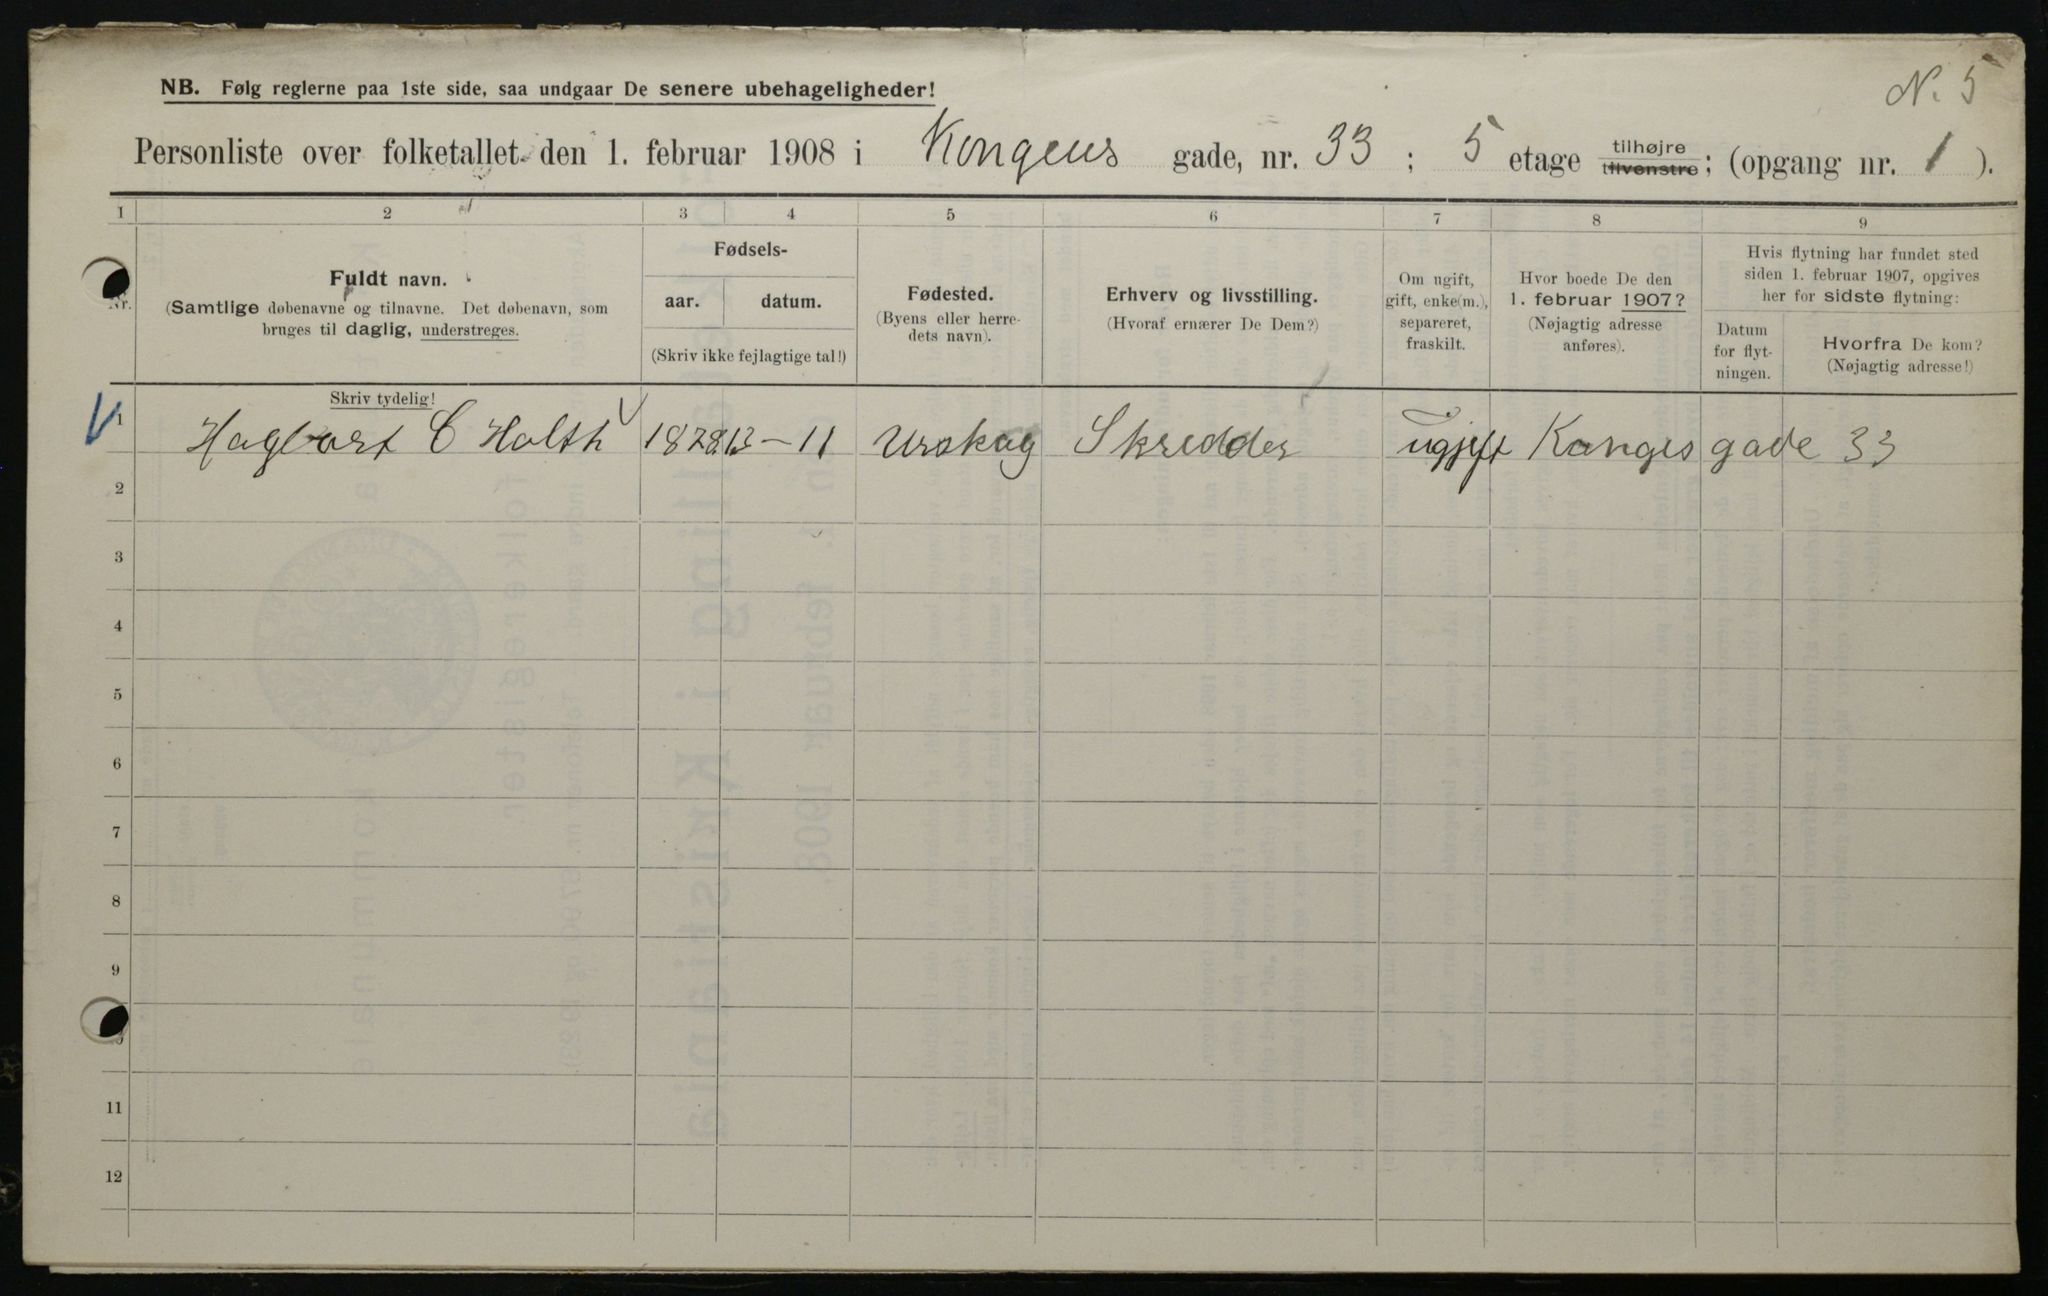 N. 5
NB. Følg reglerne paa 1ste side, saa undgaar De senere ubehageligheder!
Personliste over folketallet den 1. februar 1908 i Kongens gade, nr. 33; 5 etage tilhøjre tilvenstre; (opgang nr. 1).
1 2 3 4 5 6 7 8 9
Nr.
Fuldt navn.
(Samtlige døbenavne og tilnavne. Det døbenavn, som
bruges til daglig, understreges.
Skriv tydelig!
Fødsels-
aar. datum.
(Skriv ikke fejlagtige tal!)
Fødested.
(Byens eller herre-
dets navn).
Erhverv og livsstilling.
(Hvoraf ernærer De Dem?)
Om ugift,
gift, enke(m.),
separeret,
fraskilt.
Hvor boede De den
1. februar 1907?
(Nøjagtig adresse
anføres).
Hvis flytning har fundet sted
siden 1. februar 1907, opgives
her for sidste flytning:
Datum
for flyt-
ningen.
Hvorfra De kom?
(Nøjagtig adresse!)
1 Hagbart C Holth 1878 13-11 Urskog Skredder ugjift Konges gade 33
2
3
4
5
6
7
8
9
11
12